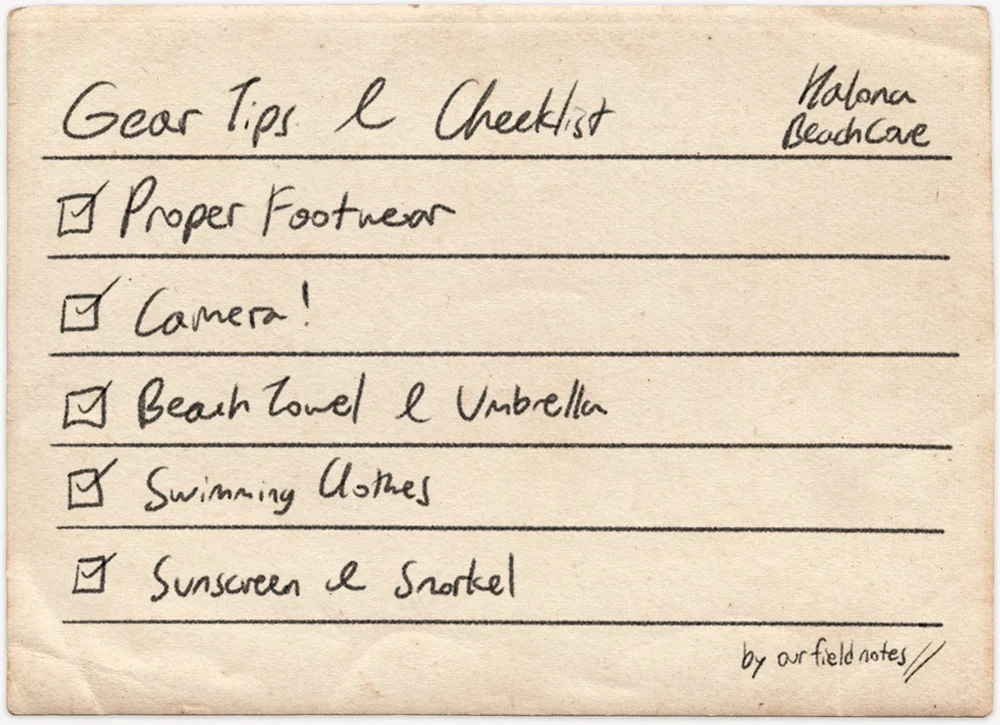 Gear Tips & Checklist
Halona
Beach Cove
Proper Footwear
Camera!
Beach Towel & Umbrella
Swimming Clothes
Sunscreen & Snorkel
by our field notes //